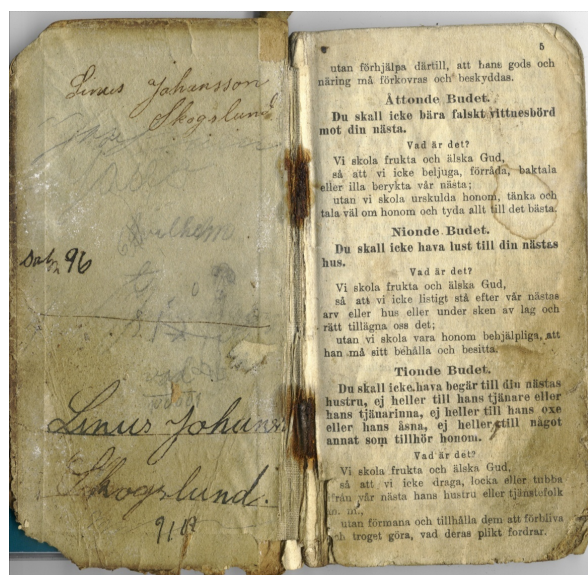 Linus Johansson
Skogslund
Vilhelm
96
Linus Johans
Skogslund.
5
utan förhjälpa därtill, att hans gods och
näring må förkovras och beskyddas.
Åttonde Budet.
Du skall icke bära falskt vittnesbörd
mot din nästa.
Vad är det?
Vi skola frukta och älska Gud,
så att vi icke beljuga, förråda, baktala
eller illa berykta vår nästa;
utan vi skola urskulda honom, tänka och
tala väl om honom och tyda allt till det bästa.
Nionde Budet.
Du skall icke hava lust till din nästas
hus.
Vad är det?
Vi skola frukta och älska Gud,
så att vi icke listigt stå efter vår nästas
arv eller hus eller under sken av lag och
rätt tillägna oss det;
utan vi skola vara honom behjälpliga, att
han må sitt behålla och besitta.
Tionde Budet.
Du skall icke hava begär till din nästas
hustru, ej heller till hans tjänare eller
hans tjänarinna, ej heller till hans oxe
eller hans åsna, ej heller till något
annat som tillhör honom.
Vad är det?
Vi skola frukta och älska Gud,
så att vi icke draga, locka eller tubba
ifrån vår nästa hans hustru eller tjänstefolk
m. m.,
utan förmana och tillhålla dem att förbliva
och troget göra, vad deras plikt fordrar.